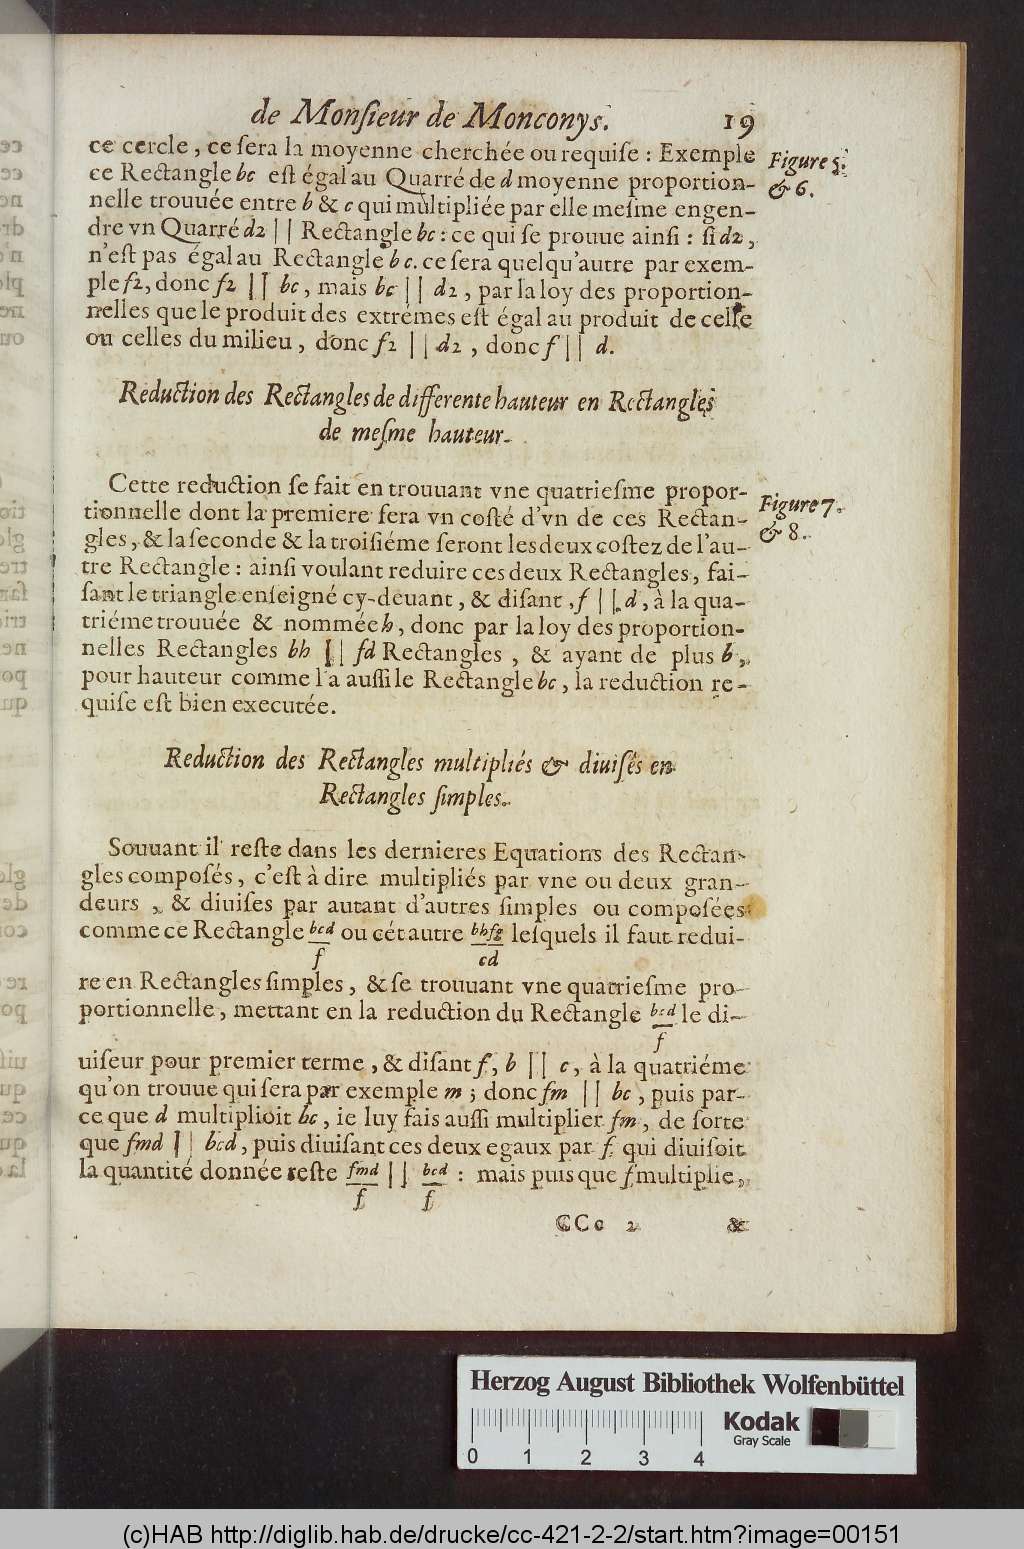 de Monſieur de Monconys. 19
ce cercle, ce ſera la moyenne cherchée ou requiſe : Exemple
Figure 5.
ce Rectangle bc eſt égal au Quarré de d moyenne proportion-
& 6.
nelle trouuée entre b & c qui multipliée par elle meſme engen-
dre vn Quarré d2 || Rectangle bc : ce qui ſe prouue ainſi : ſi d2,
n'eſt pas égal au Rectangle bc. ce ſera quelqu'autre par exem-
ple f2, donc f2 || bc, mais bc || d2, par la loy des proportion-
nelles que le produit des extrémes eſt égal au produit de celle
ou celles du milieu, donc f2 || d2, donc f || d.
Reduction des Rectangles de differente hauteur en Rectangles
de meſme hauteur.
Cette reduction ſe fait en trouuant vne quatrieſme propor-
Figure 7.
tionnelle dont la premiere ſera vn coſté d'vn de ces Rectan-
& 8.
gles, & la ſeconde & la troiſiéme ſeront les deux coſtez de l'au-
tre Rectangle : ainſi voulant reduire ces deux Rectangles, fai-
ſant le triangle enſeigné cy-deuant, & diſant, f || d, à la qua-
triéme trouuée & nommée h, donc par la loy des proportion-
nelles Rectangles bh || fd Rectangles, & ayant de plus b,
pour hauteur comme l'a auſſi le Rectangle bc, la reduction re-
quiſe eſt bien executée.
Reduction des Rectangles multipliés & diuiſés en
Rectangles ſimples.
Souuant il reſte dans les dernieres Equations des Rectan-
gles compoſés, c'eſt à dire multipliés par vne ou deux gran-
deurs, & diuiſes par autant d'autres ſimples ou compoſées
comme ce Rectangle bcd ou cét autre bhfg leſquels il faut redui-
f cd
re en Rectangles ſimples, & ſe trouuant vne quatrieſme pro-
portionnelle, mettant en la reduction du Rectangle bcd le di-
f
uiſeur pour premier terme, & diſant f, b || c, à la quatriéme
qu'on trouue qui ſera par exemple m ; donc fm || bc, puis par-
ce que d multiplioit bc, ie luy fais auſſi multiplier fm, de ſorte
que fmd || bcd, puis diuiſant ces deux egaux par f qui diuiſoit
la quantité donnée reſte fmd || bcd : mais puis que f multiplie,
f f
CCc 2 &
Herzog August Bibliothek Wolfenbüttel
Kodak
Gray Scale
0 1 2 3 4
(c)HAB http://diglib.hab.de/drucke/cc-421-2-2/start.htm?image=00151